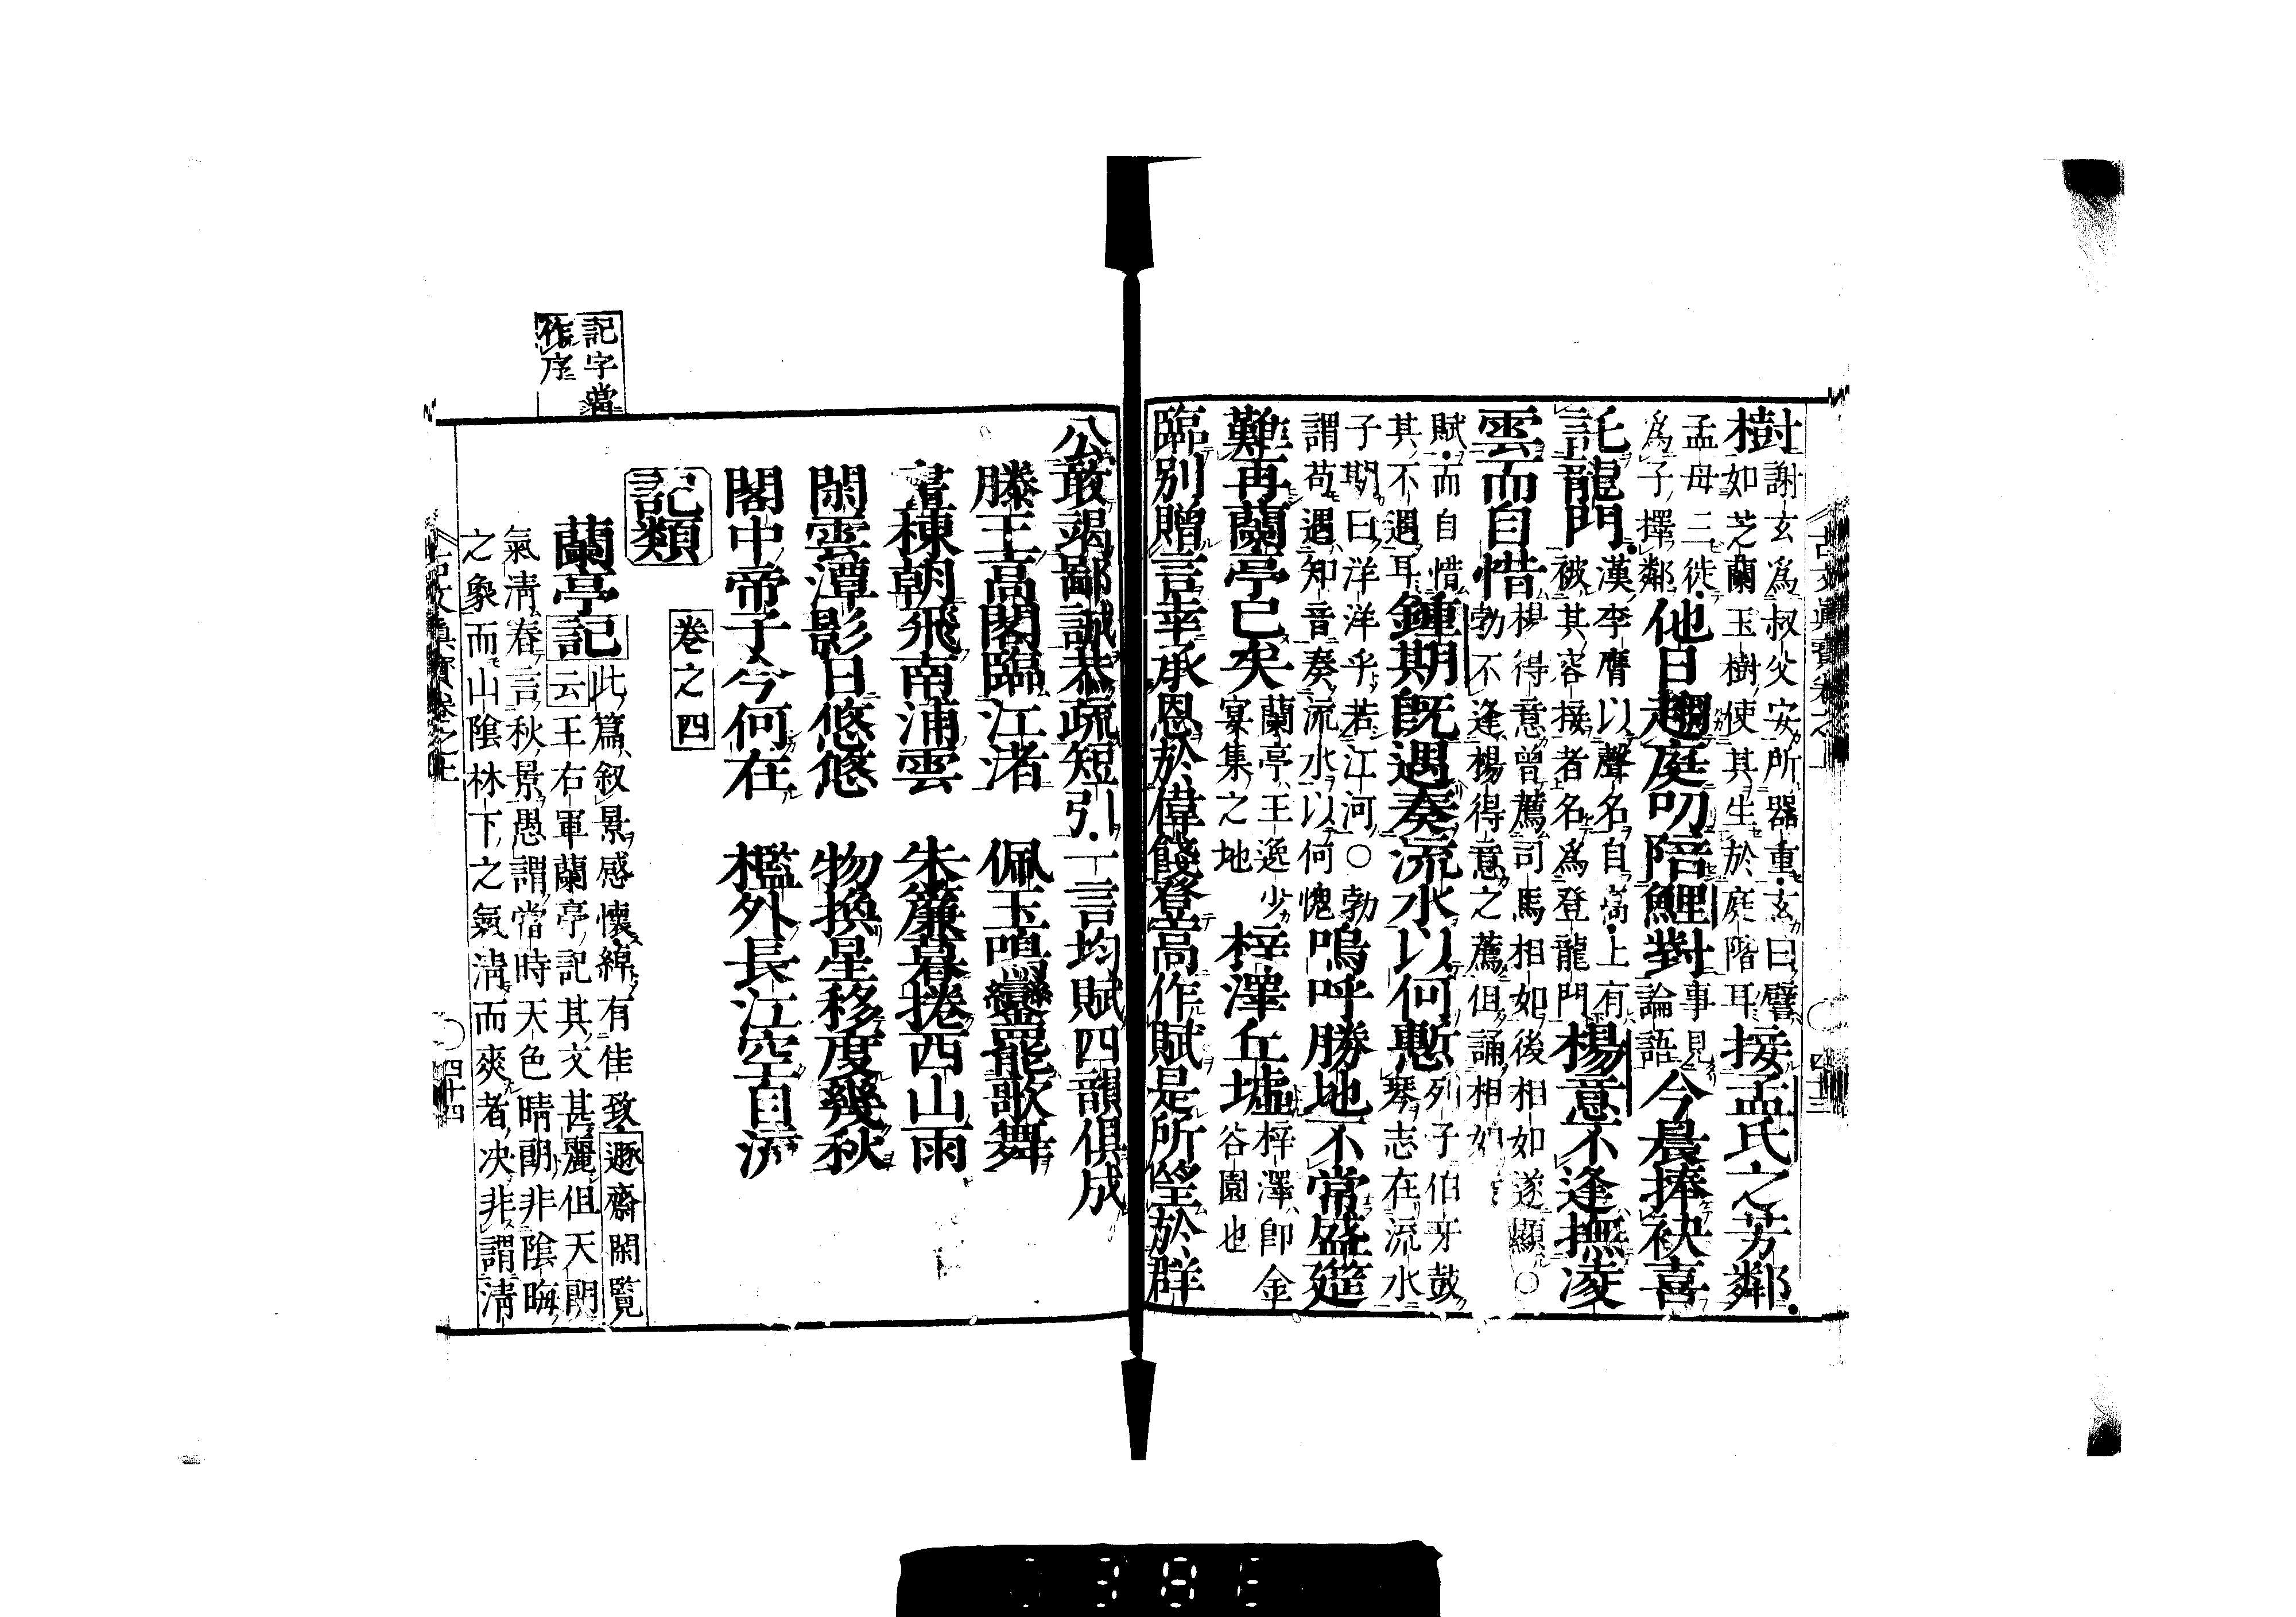 樹謝玄爲叔父安所器重玄曰譬
如芝蘭玉樹使其生於庭階耳接孟氏之芳鄰
孟母三徙
爲子擇鄰他日趨庭叨陪鯉對事見
論語今晨捧袂喜
託龍門漢李膺以聲名自高上有
被其容接者名爲登龍門楊意不逢撫凌
雲而自惜楊得意曾薦司馬相如後相如遂顯〇
勃不逢楊得意之薦但誦相如
賦而自惜
其不遇耳鍾期旣遇奏流水以何慙列子伯牙鼓
琴志在流水
子期曰洋洋乎若江河〇勃
謂苟遇知音奏流水以何愧嗚呼勝地不常盛筵
難再蘭亭已矣蘭亭王逸少
宴集之地梓澤丘墟梓澤卽金
谷園也
臨別贈言幸承恩於偉餞登高作賦是所望於群
公敢竭鄙誠恭疏短引一言均賦四韻俱成
滕王高閣臨江渚　佩玉鳴鸞罷歌舞
畫棟朝飛南浦雲　朱簾暮捲西山雨
閑雲潭影日悠悠　物換星移度幾秋
閣中帝子今何在　檻外長江空自流
卷之四
記類
蘭亭記此篇叙景感懷綽有佳致遯齋閑覧
云王右軍蘭亭記其文甚麗但天朗
氣淸春言秋景愚謂當時天色晴朗非陰晦
之象而山陰林下之氣淸而爽者决非謂淸
記字當
作序
古文眞寶卷之上
四十三
古文眞寶卷之上
四十四